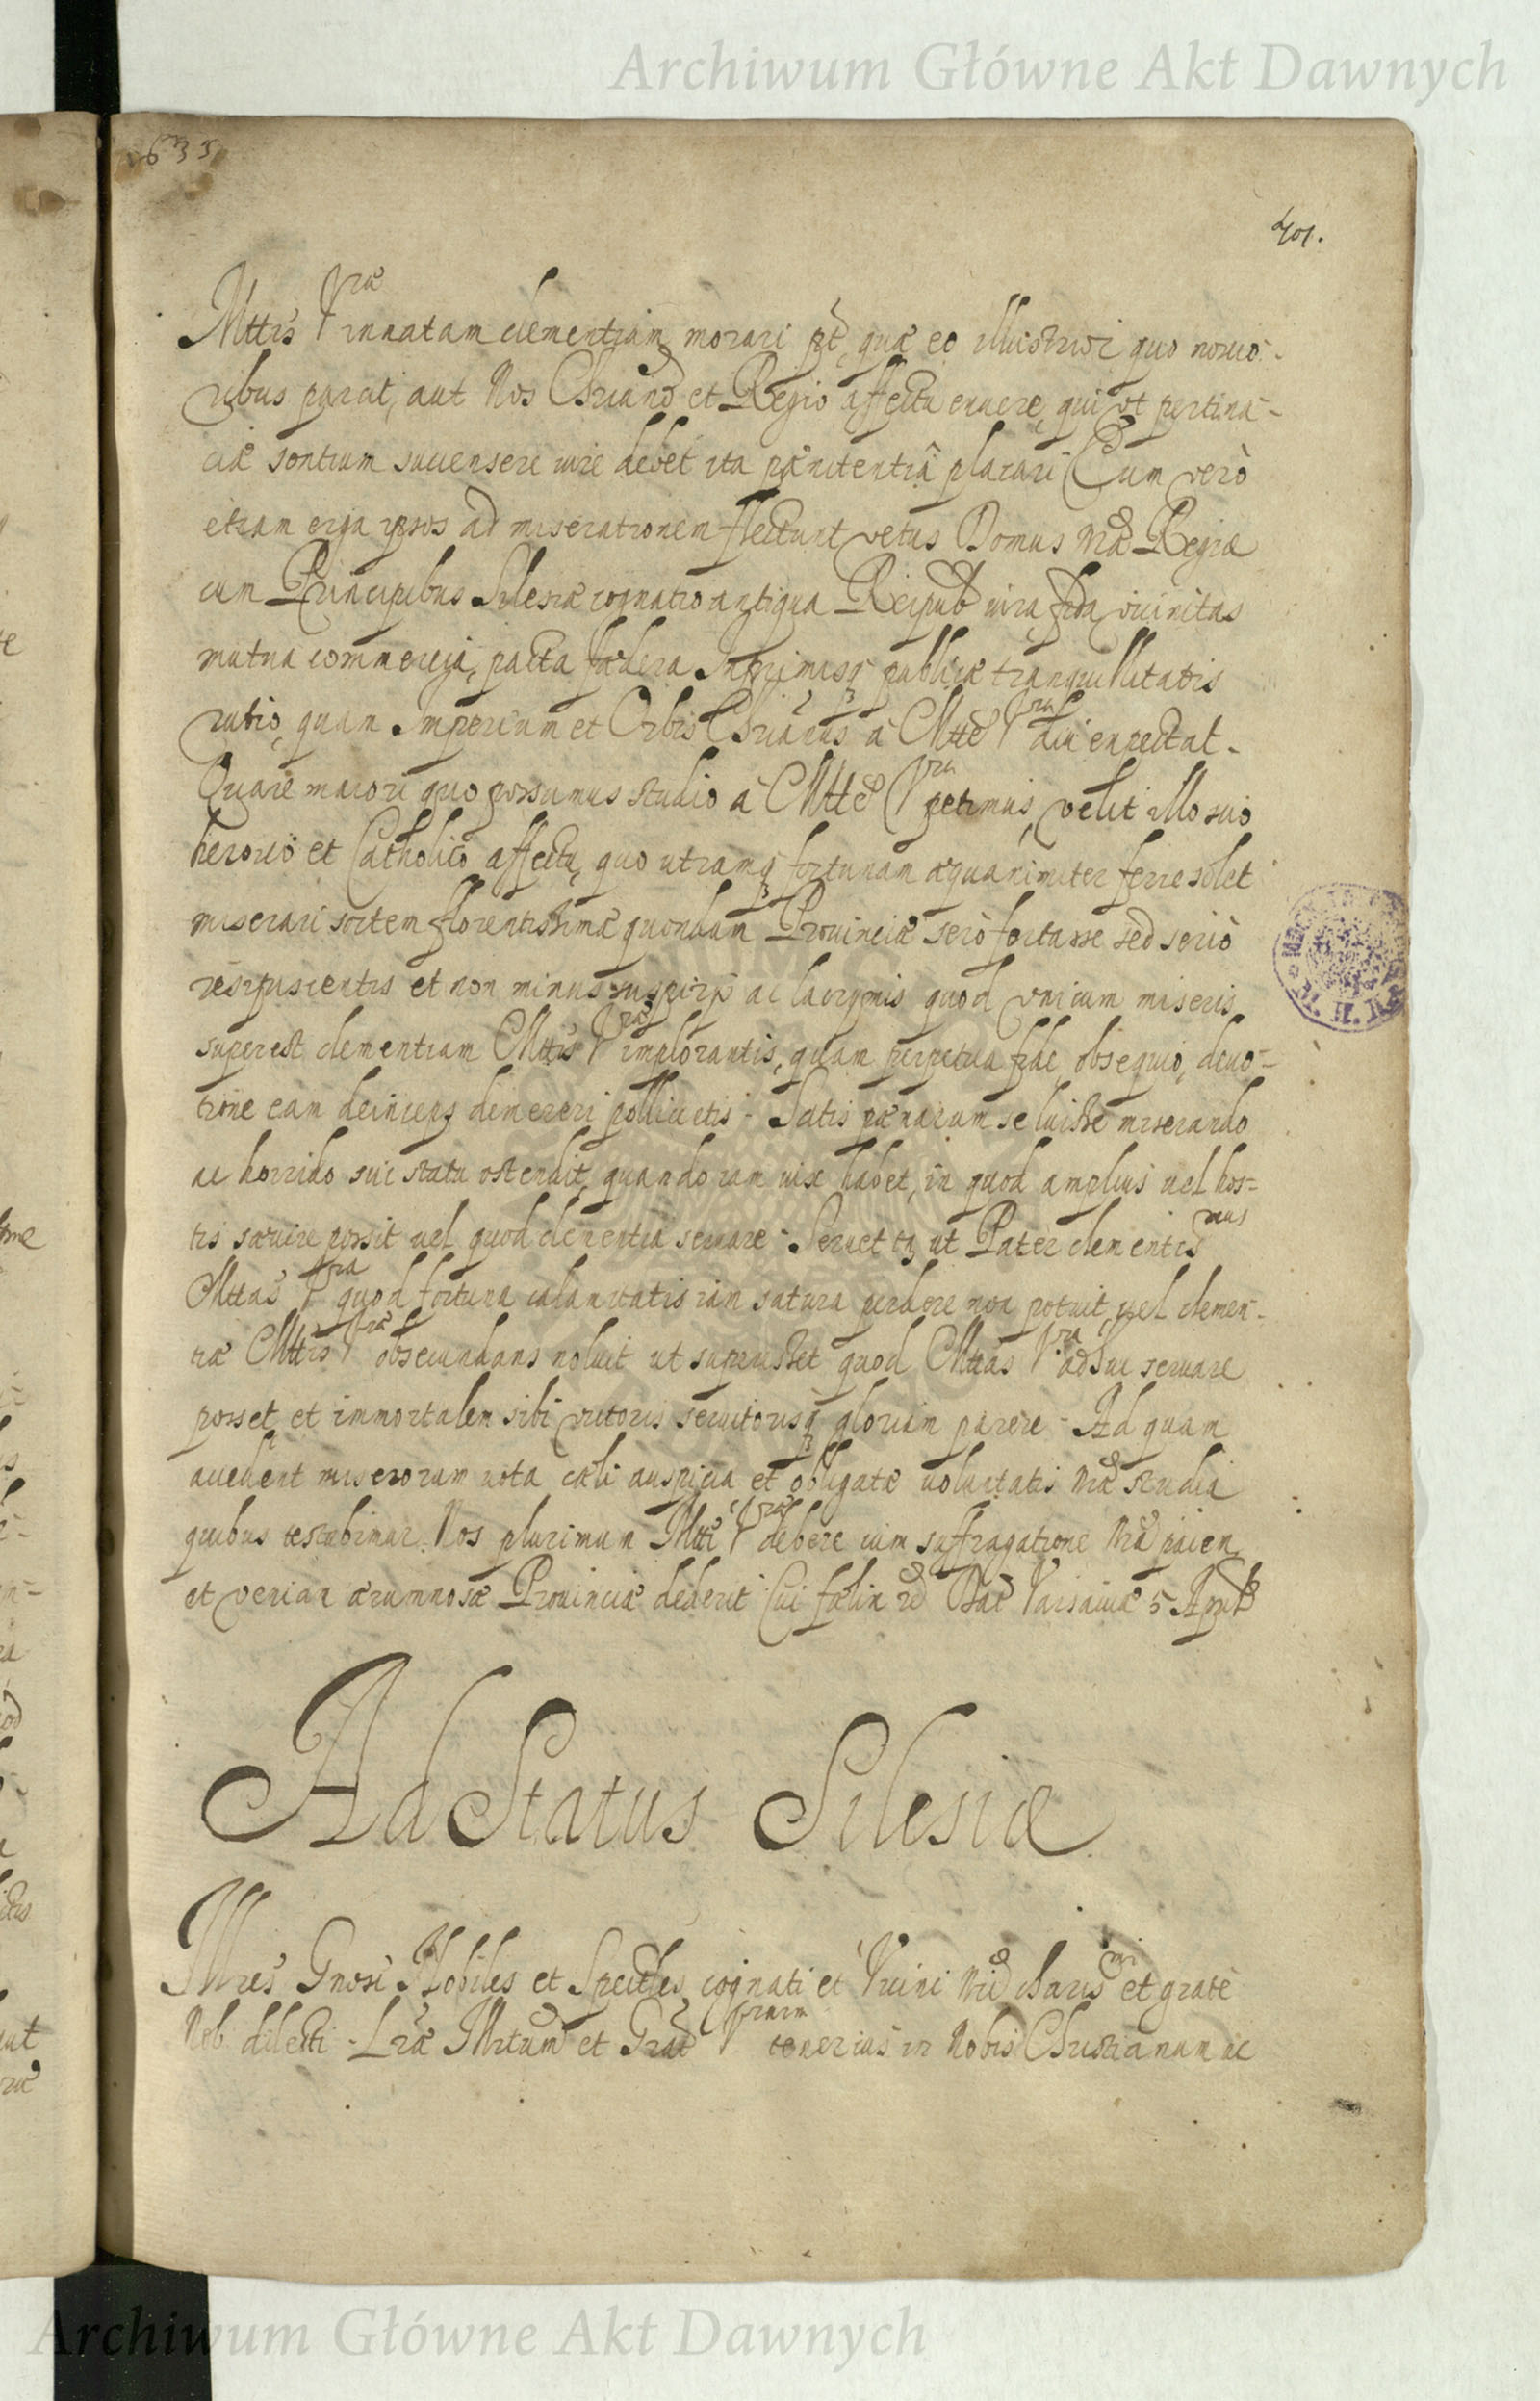 Archiwum Główne Akt Dawnych
1635
401.
Mttis Vrae innatam clementiam morari pt, quae eo illustrior quo nouo-
ribus parat, aut Nos Chriano et Regio affectu exuere, qui vt pertina-
ciae sontium succensere iure debet ita paenitentiâ placari Cum verò
etiam erga ipsos ad miserationem flectunt vetus Domus Nrae Regiae
cum Principibus Silesiae cognatio antiqua Reipub iura, fida vicinitas
mutua commercia, pacta faedera Inprimisq publicae tranquillitatis
ratio, quam Imperium et Orbis Chrianus à Mtte Vra diu expectat-
Quare maiori quo possumus studio à Mtte Vra petimus, velit illo suo
heroico et Catholico affectu, quo utramq fortunam aequanimiter ferre solet
miserari sortem florentissimae quondam Prouinciae serò fortasse sed seriò
resipiscentis et non minus suspirijs ac lacrymis quod vnicum miseris
superest clementiam Mttis Vrae implorantis, quam perpetua fide, obsequio, deuo-
tione eam deinceps demereri pollicetis - Satis paenarum se luisse miserando
ac horrido sui statu ostendit, quando iam vix habet, in quod amplius uel hos-
tis saeuire possit uel quod clementia seruare - Seruet itq ut Pater clementissimus
Mttas Vra quod fortuna calamitatis iam satura perdere non potuit, uel clemen-
tiae Mttis Vrae obsecundans noluit ut superesset quod Mttas Vra adhuc seruare
posset, et immortalem sibi victoris seruitorisq gloriam parere - Ad quam
accedent miserorum vota caeli auspicia et obligatae voluntatis Nrae studia
quibus testabimur Nos plurimum Mtti Vrae debere cum suffragatione Nra pacem
et veniam aerumnosae Prouinciae dederit Cui faelix rd Dat Varsauiae 5 April
Ad Status Silesiae
Illres Gnosi Nobiles et Spectles cognati et Vicini Nri chariss mi et grate
Nob dilecti - Lrae Illrtum et Grat Vrarum tenerius in Nobis Christianum ac
Archiwum Główne Akt Dawnych